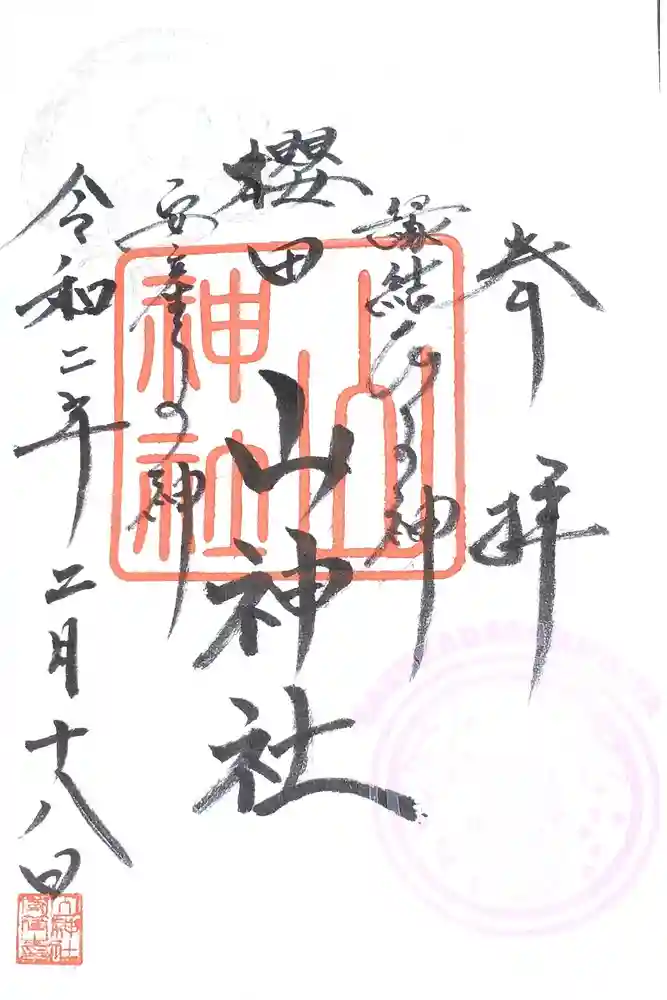 奉拝
縁結びの神
櫻田山神社
安産の神
令和二年二月十八日
山神社